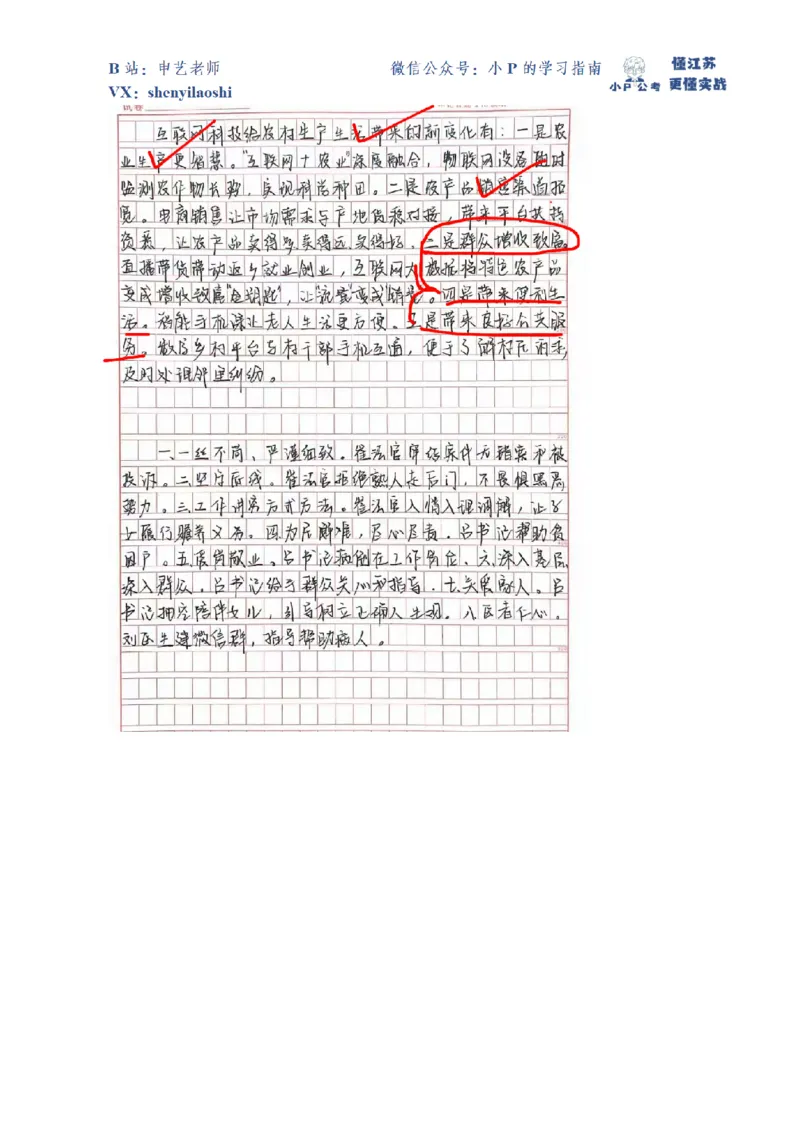 B 站：申艺老师 微信公众号：小 P 的学习指南 懂江苏
VX：shenyilaoshi 小P公考 更懂实战
试卷
互联网科技给农村生产生活带来的新变化有：一是农
业生产更智慧。“互联网＋农业”深度融合，物联网设备随时
监测农作物长势，实现科学种田。二是农产品销售渠道拓
宽。电商销售让市场需求与产地货源对接，带来平台扶持
资源，让农产品卖得早卖得远卖得好。三是群众增收致富。
直播带货带动返乡就业创业，互联网大数据将特色农产品
变成增收致富“金钥匙”，让“流量”变成“销量”。四是带来便利生
活。智能手机课让老人生活更方便。五是带来良好公共服
务。数字乡村平台与村干部手机互通，便于了解村民需求
及时处理邻里纠纷。
一、一丝不苟、严谨细致。崔法官审结案件无错案和被
投诉。二坚守底线。崔法官拒绝熟人走后门，不畏惧黑恶
势力。三工作讲究方式方法。崔法官入情入理调解，让子
女履行赡养义务。四为民解难，尽心尽责。吕书记帮助贫
困户。五爱岗敬业。吕书记病倒在工作岗位。六、深入基层
深入群众。吕书记给予群众关心和指导。七、关爱家人。吕
书记拥空陪伴女儿，引导树立正确人生观。八医者仁心。
刘医生建微信群，指导帮助病人。